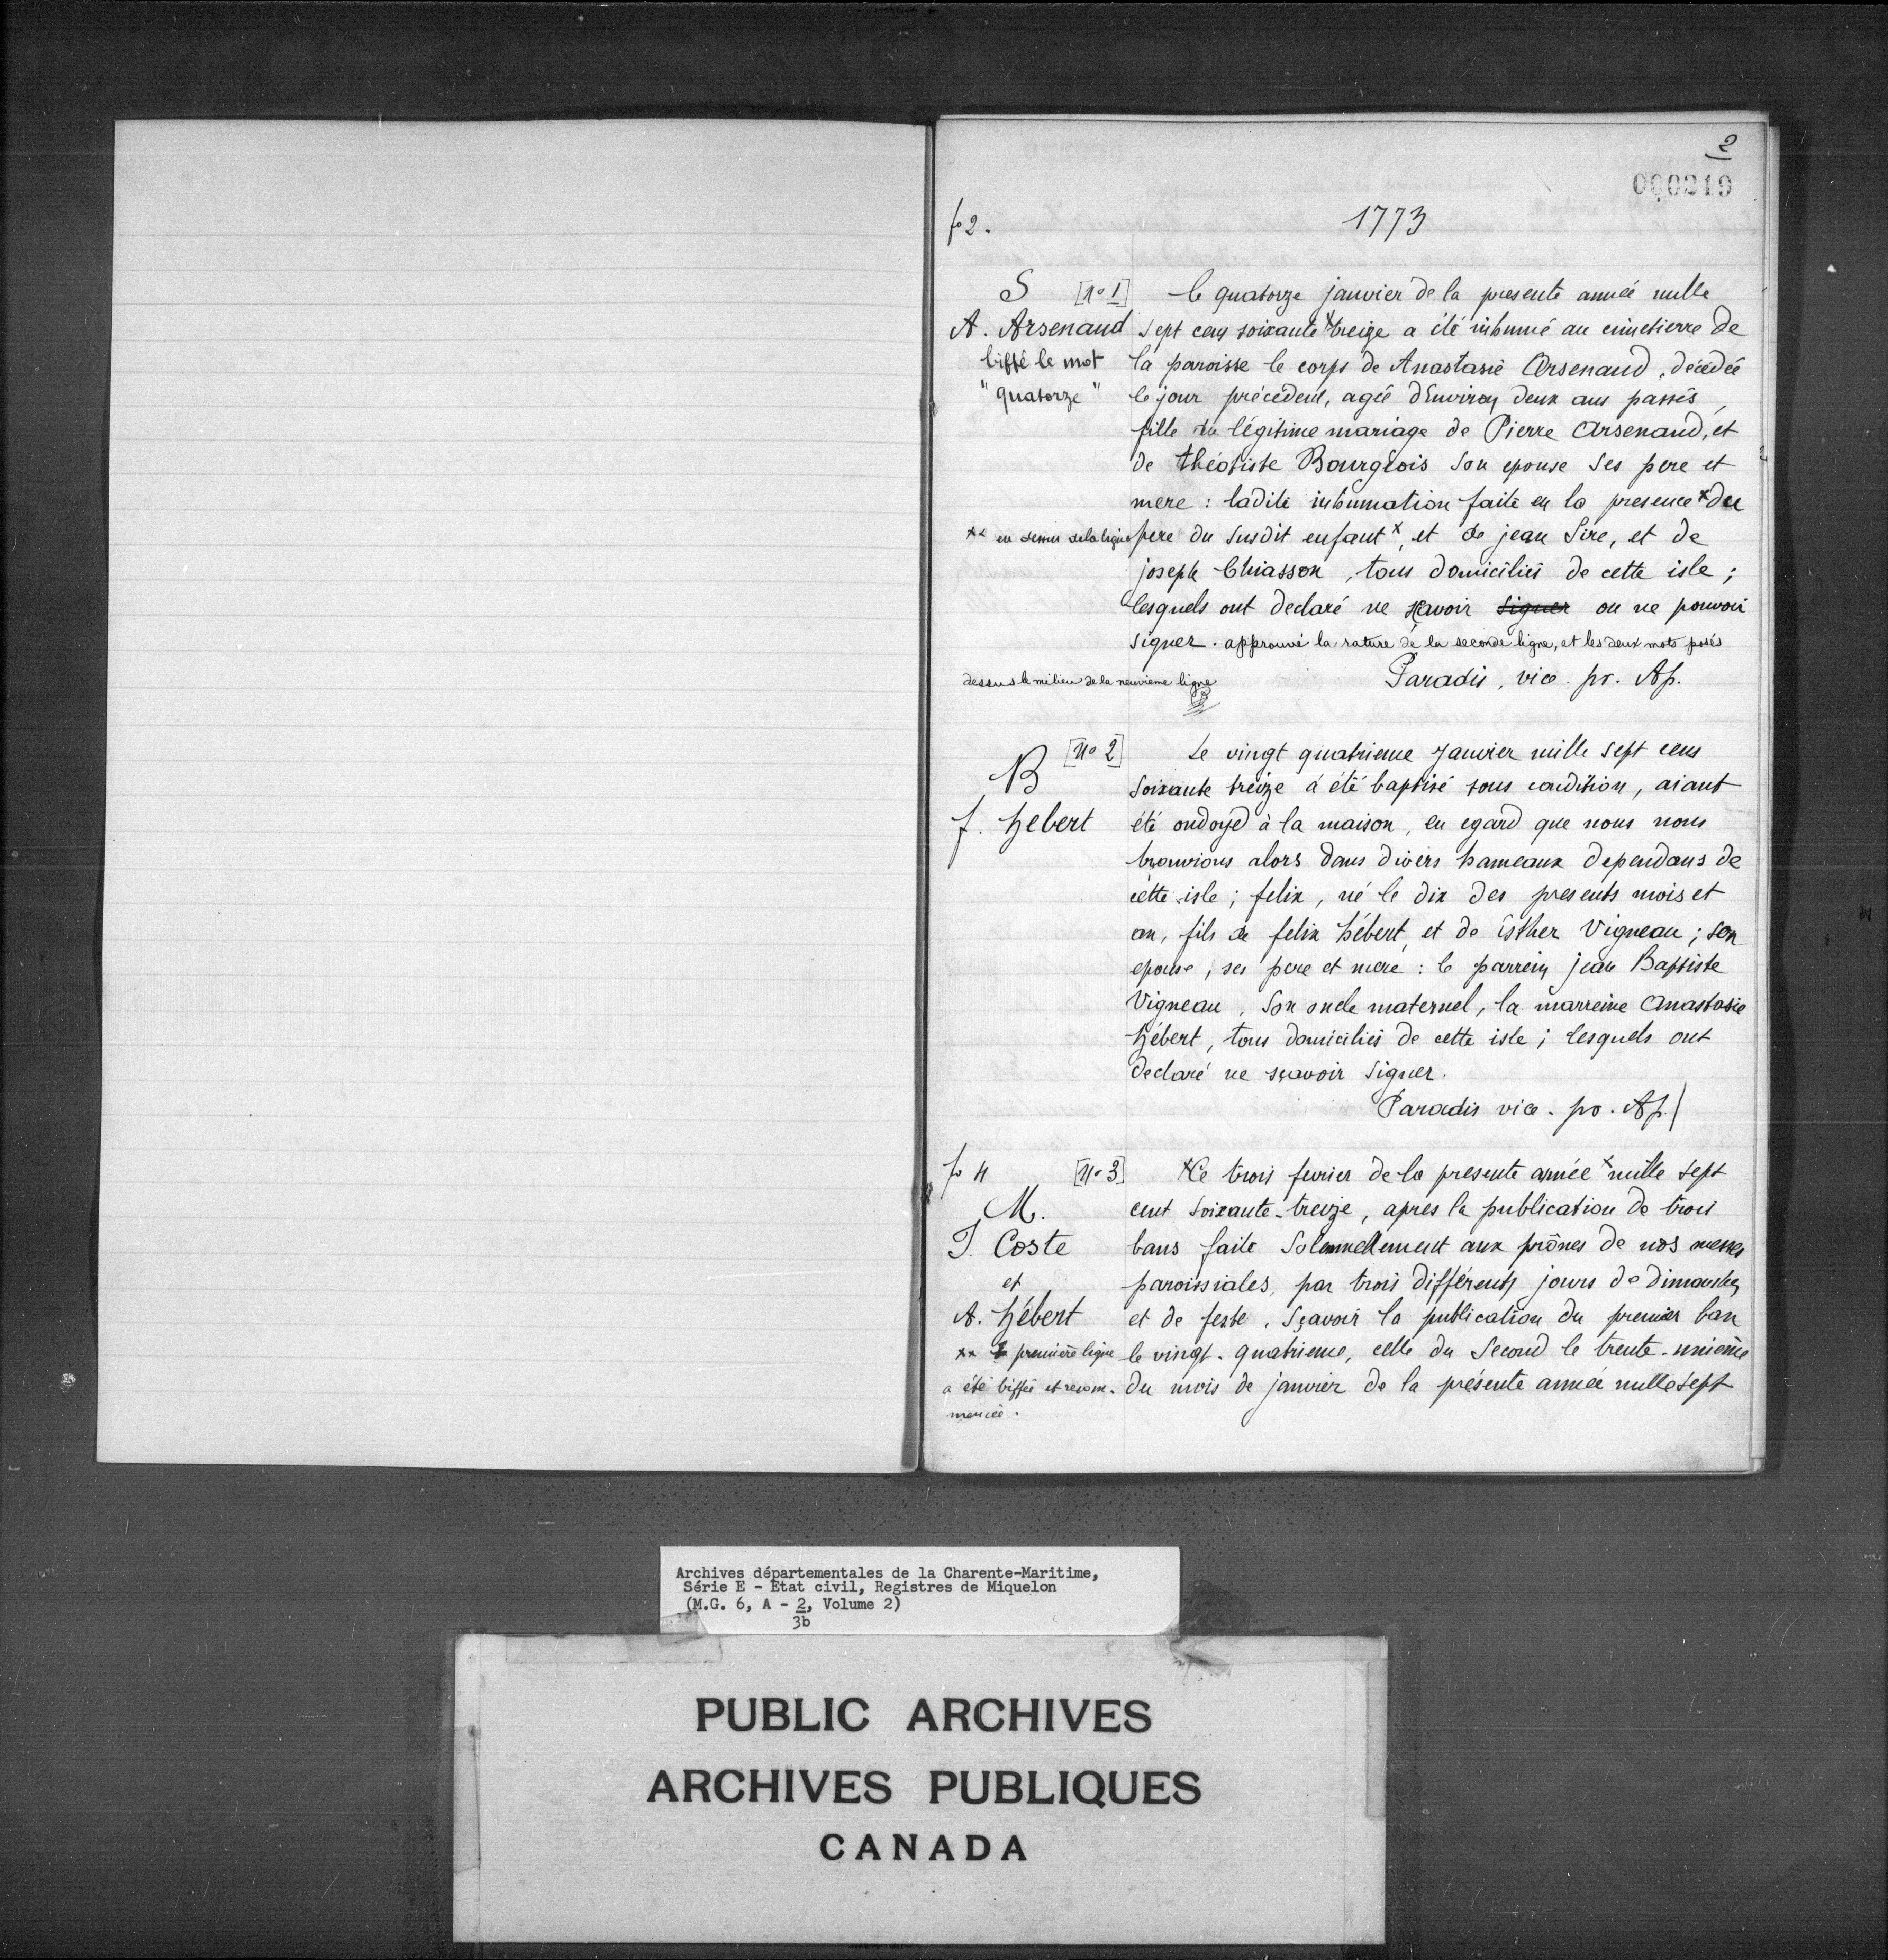 2
000219
fo 2.
1773
S [No 1] le quatorze janvier de la presente année mille
A. Arsenaud sept cens soixante x treize a été inhumé au cimetierre de
biffé le mot la paroisse le corps de Anastasie Arsenaud, décédée
"quatorze" le jour précédent, agée d'Environ deux ans passés,
fille du légitime mariage de Pierre Arsenaud, et
de théotiste Bourgeois son epouse ses pere et
mere : ladite inhumation faite en la presence x du
xx en dessus de la ligne pere du susdit enfant x, et de jean Sire, et de
joseph Chiasson, tous domiciliés de cette isle ;
lesquels ont declaré ne sçavoir signer ou ne pouvoir
signer. approuvé la rature de la seconde ligne, et les deux mots posés
dessus le milieu de la neuvieme ligne
Paradis, vice. pr. Ap.
[No 2] Le vingt quatrieme janvier mille sept cens
B soixante treize a été baptisé sous condition, aiant
f. hebert été ondoyé à la maison, eu egard que nous nous
trouvions alors dans divers hameaux dependans de
cette isle ; felix, né le dix des presents mois et
an, fils de felix hébert, et de Esther Vigneau ; son
epouse, ses pere et mere : le parrein jean Baptiste
Vigneau, son oncle maternel, la marreine Anastasie
hébert, tous domiciliés de cette isle ; lesquels ont
declaré ne sçavoir signer.
Paradis vice. pr. Ap.
fo 4 [No 3] x Ce trois fevrier de la presente année x mille sept
M. cent soixante-treize, apres la publication de trois
J. Coste bans faite solemnellement aux prônes de nos messes
et paroissiales, par trois différents jours de dimanches
A. hébert et de feste, sçavoir la publication du premier ban
xx la première ligne le vingt-quatrieme, celle du second le trente-unième
a été biffée et recom- du mois de janvier de la présente année mille sept
mencée.
Archives départementales de la Charente-Maritime,
Série E - État civil, Registres de Miquelon
(M.G. 6, A - 2, Volume 2)
3b
PUBLIC ARCHIVES
ARCHIVES PUBLIQUES
CANADA